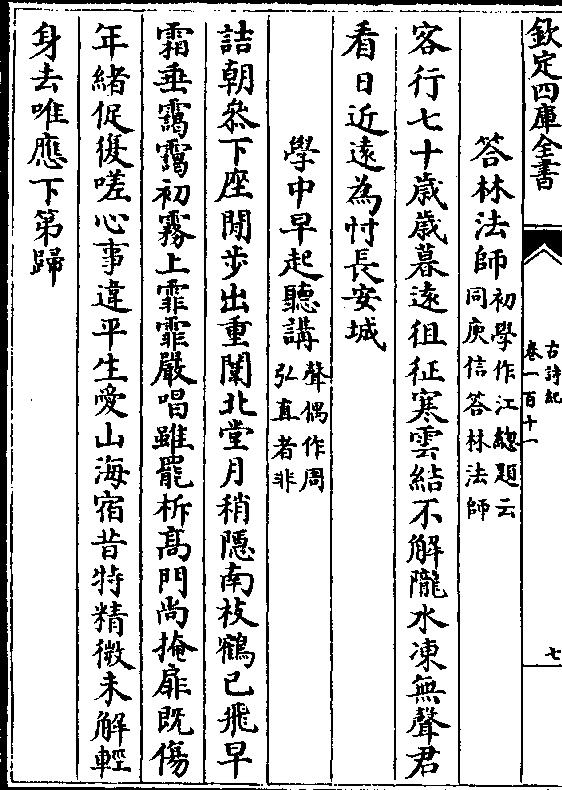 欽定四庫全書
古詩紀
卷一百十一
七
答林法師初學作江總題云
同庾信答林法師
客行七十歲歲暮遠徂征寒雲結不解隴水凍無聲君
看日近遠為忖長安城
學中早起聽講聲偶作周
弘直者非
詰朝叅下座閒步出重闈北堂月稍隠南枝鶴已飛早
霜垂靄靄初霧上霏霏嚴唱雖罷柝髙門尚掩扉既傷
年緒促復嗟心事違平生愛山海宿昔特精微未解輕
身去唯應下第歸